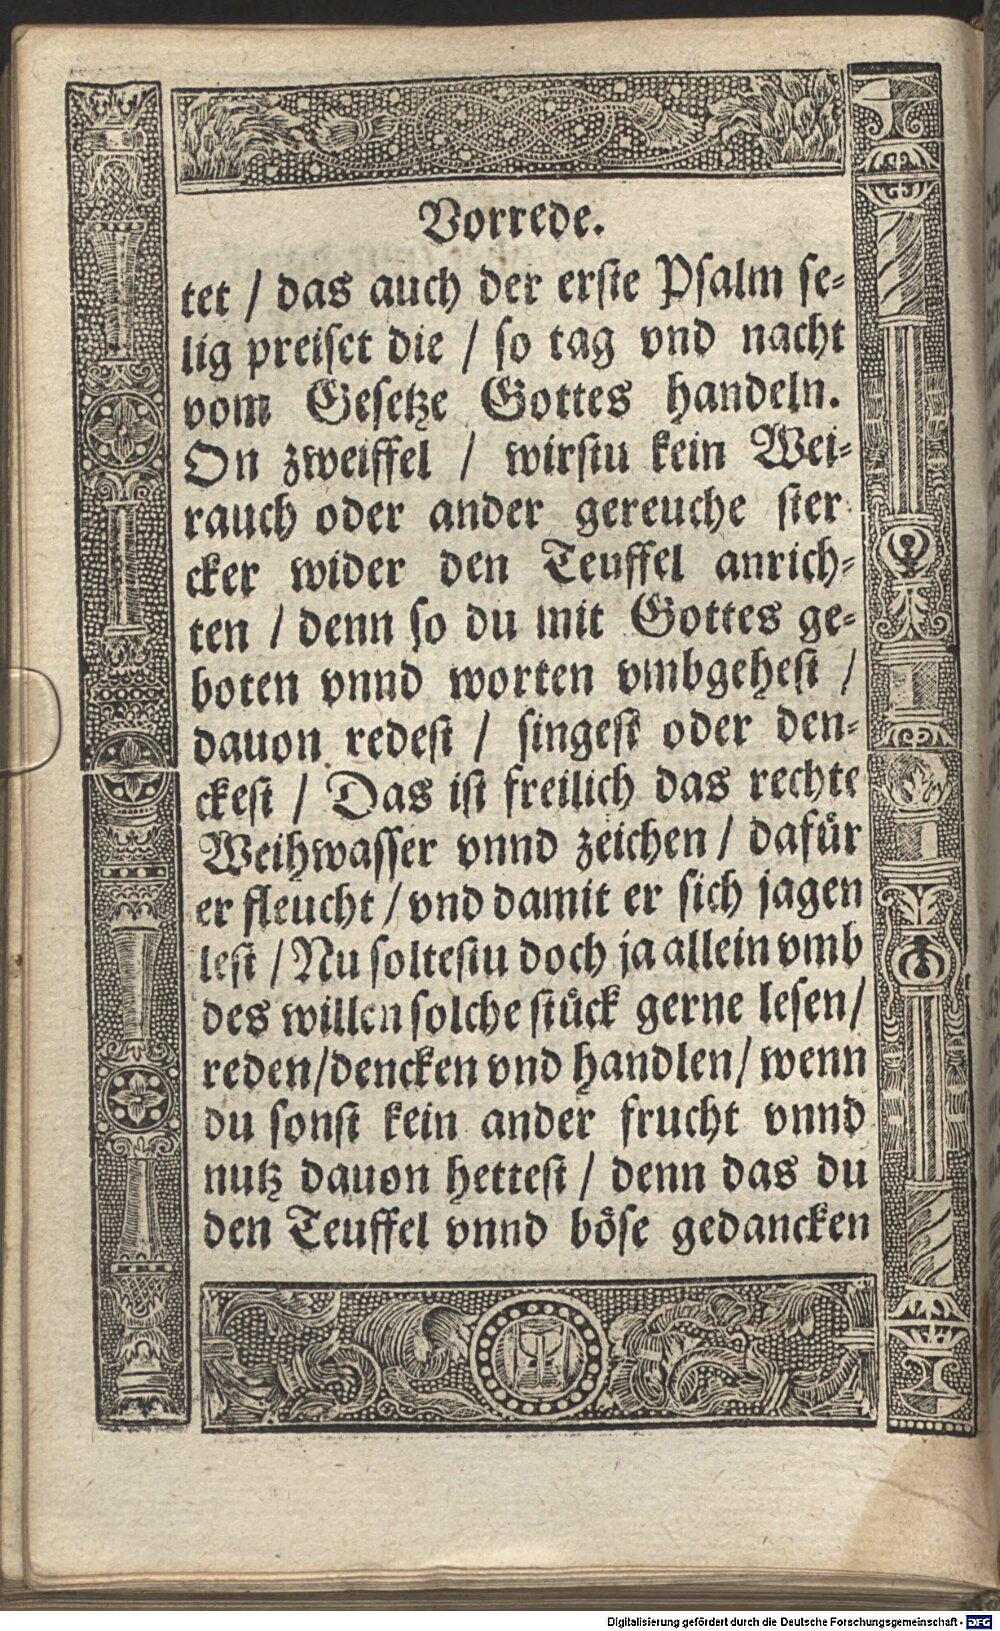 Vorrede.
tet / das auch der erſte Pſalm ſe⸗
lig preiſet die / ſo tag vnd nacht
vom Geſetze Gottes handeln.
On zweiffel / wirſtu kein Wei⸗
rauch oder ander gereuche ſter
cker wider den Teuffel anrich⸗
ten / denn ſo du mit Gottes ge⸗
boten vnnd worten vmbgeheſt /
dauon redeſt / ſingeſt oder den⸗
ckeſt / Das iſt freilich das rechte
Weihwaſſer vnnd zeichen / dafuͤr
er fleucht / vnd damit er ſich jagen
leſt / Nu ſolteſtu doch ja allein vmb
des willen ſolche ſtuͤck gerne leſen /
reden / dencken vnd handlen / wenn
du ſonſt kein ander frucht vnnd
nutz dauon hetteſt / denn das du
den Teuffel vnnd boͤſe gedancken
Digitalisierung gefördert durch die Deutsche Forschungsgemeinschaft - DFG